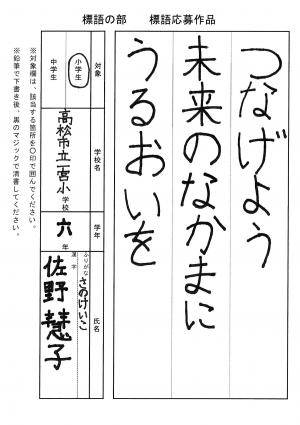 標語の部　標語応募作品
つなげよう
未来のなかまに
うるおいを
対象
小学生
中学生
学校名
高松市立一宮小学校
学年
六年
氏名
ふりがな
さのけいこ
漢字
佐野慧子
※対象欄は、該当する箇所を〇印で囲んでください。
※鉛筆で下書き後、黒のマジックで清書してください。